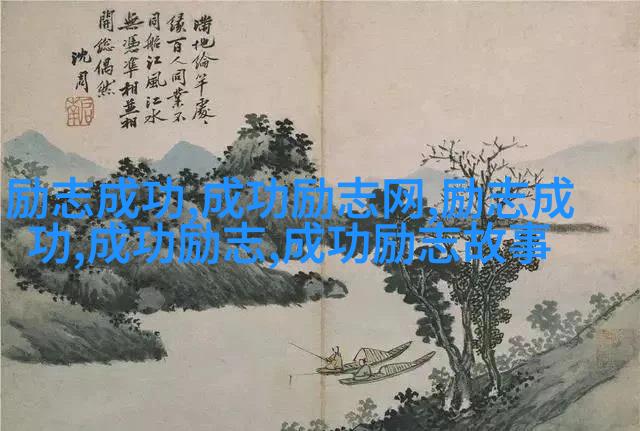 滿地綸竿處〻
緣百人同業不
同船江風江水
無憑準相並相
開總偶然
沈周
励志成功,成功励志网,励志成
功,成功励志,成功励志故事